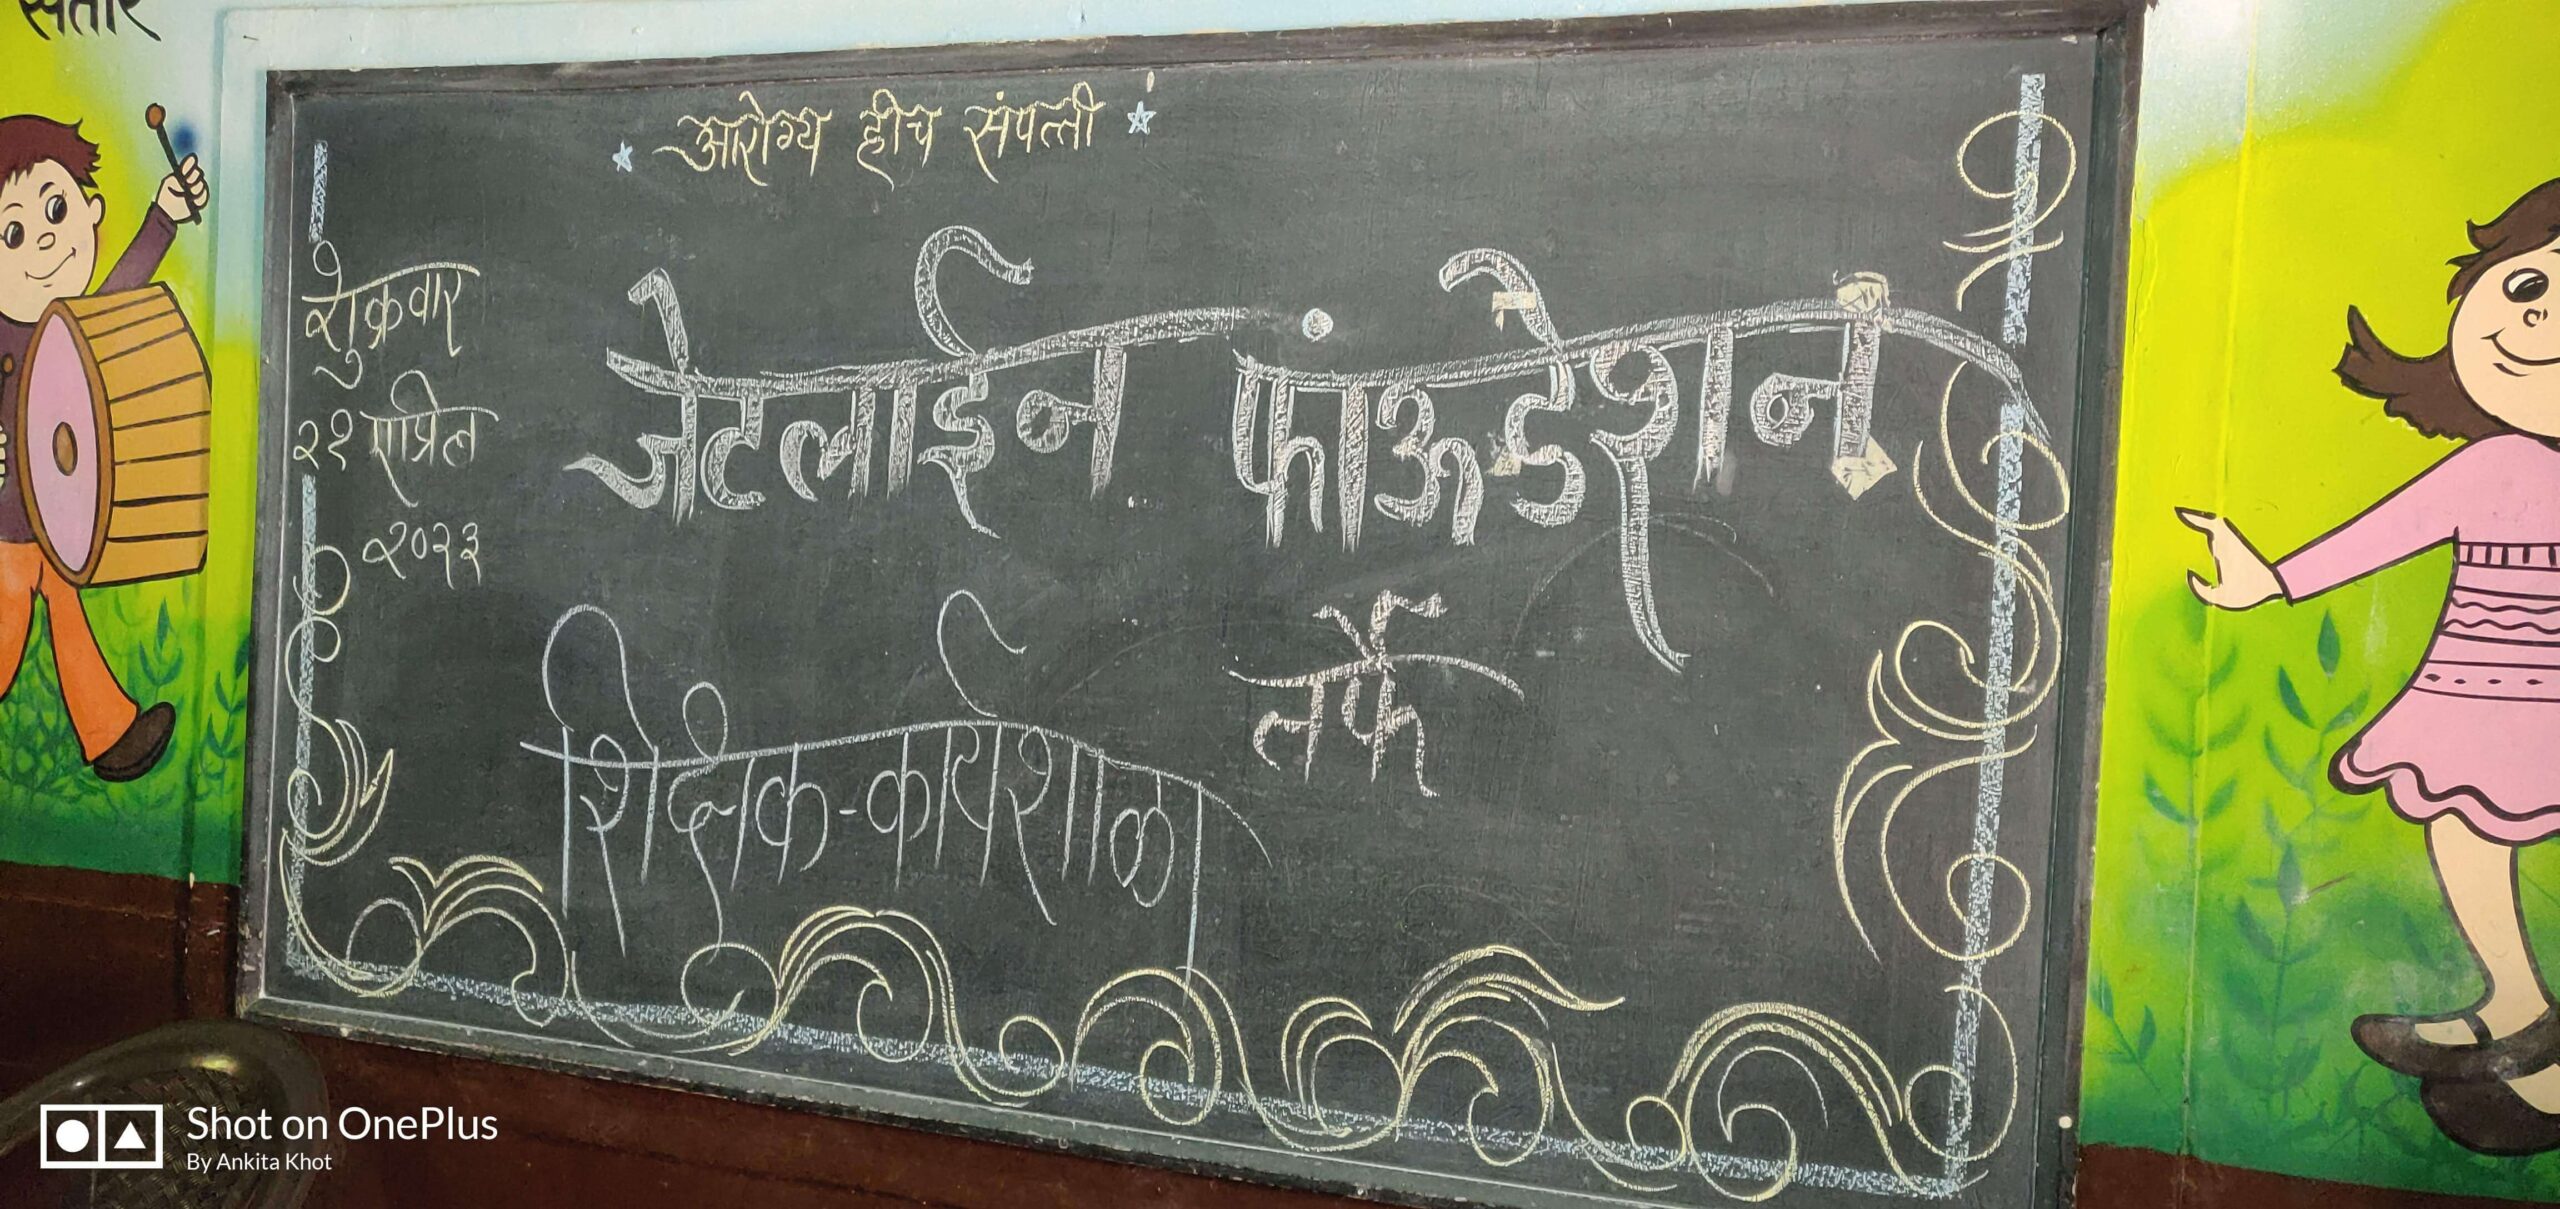 * आरोग्य हीच संपत्ती *
शुक्रवार
२१ एप्रिल
२०२३
जेटलाईन फांऊडेशन
तर्फे
शिक्षक-कार्यशाळा
Shot on OnePlus
By Ankita Khot